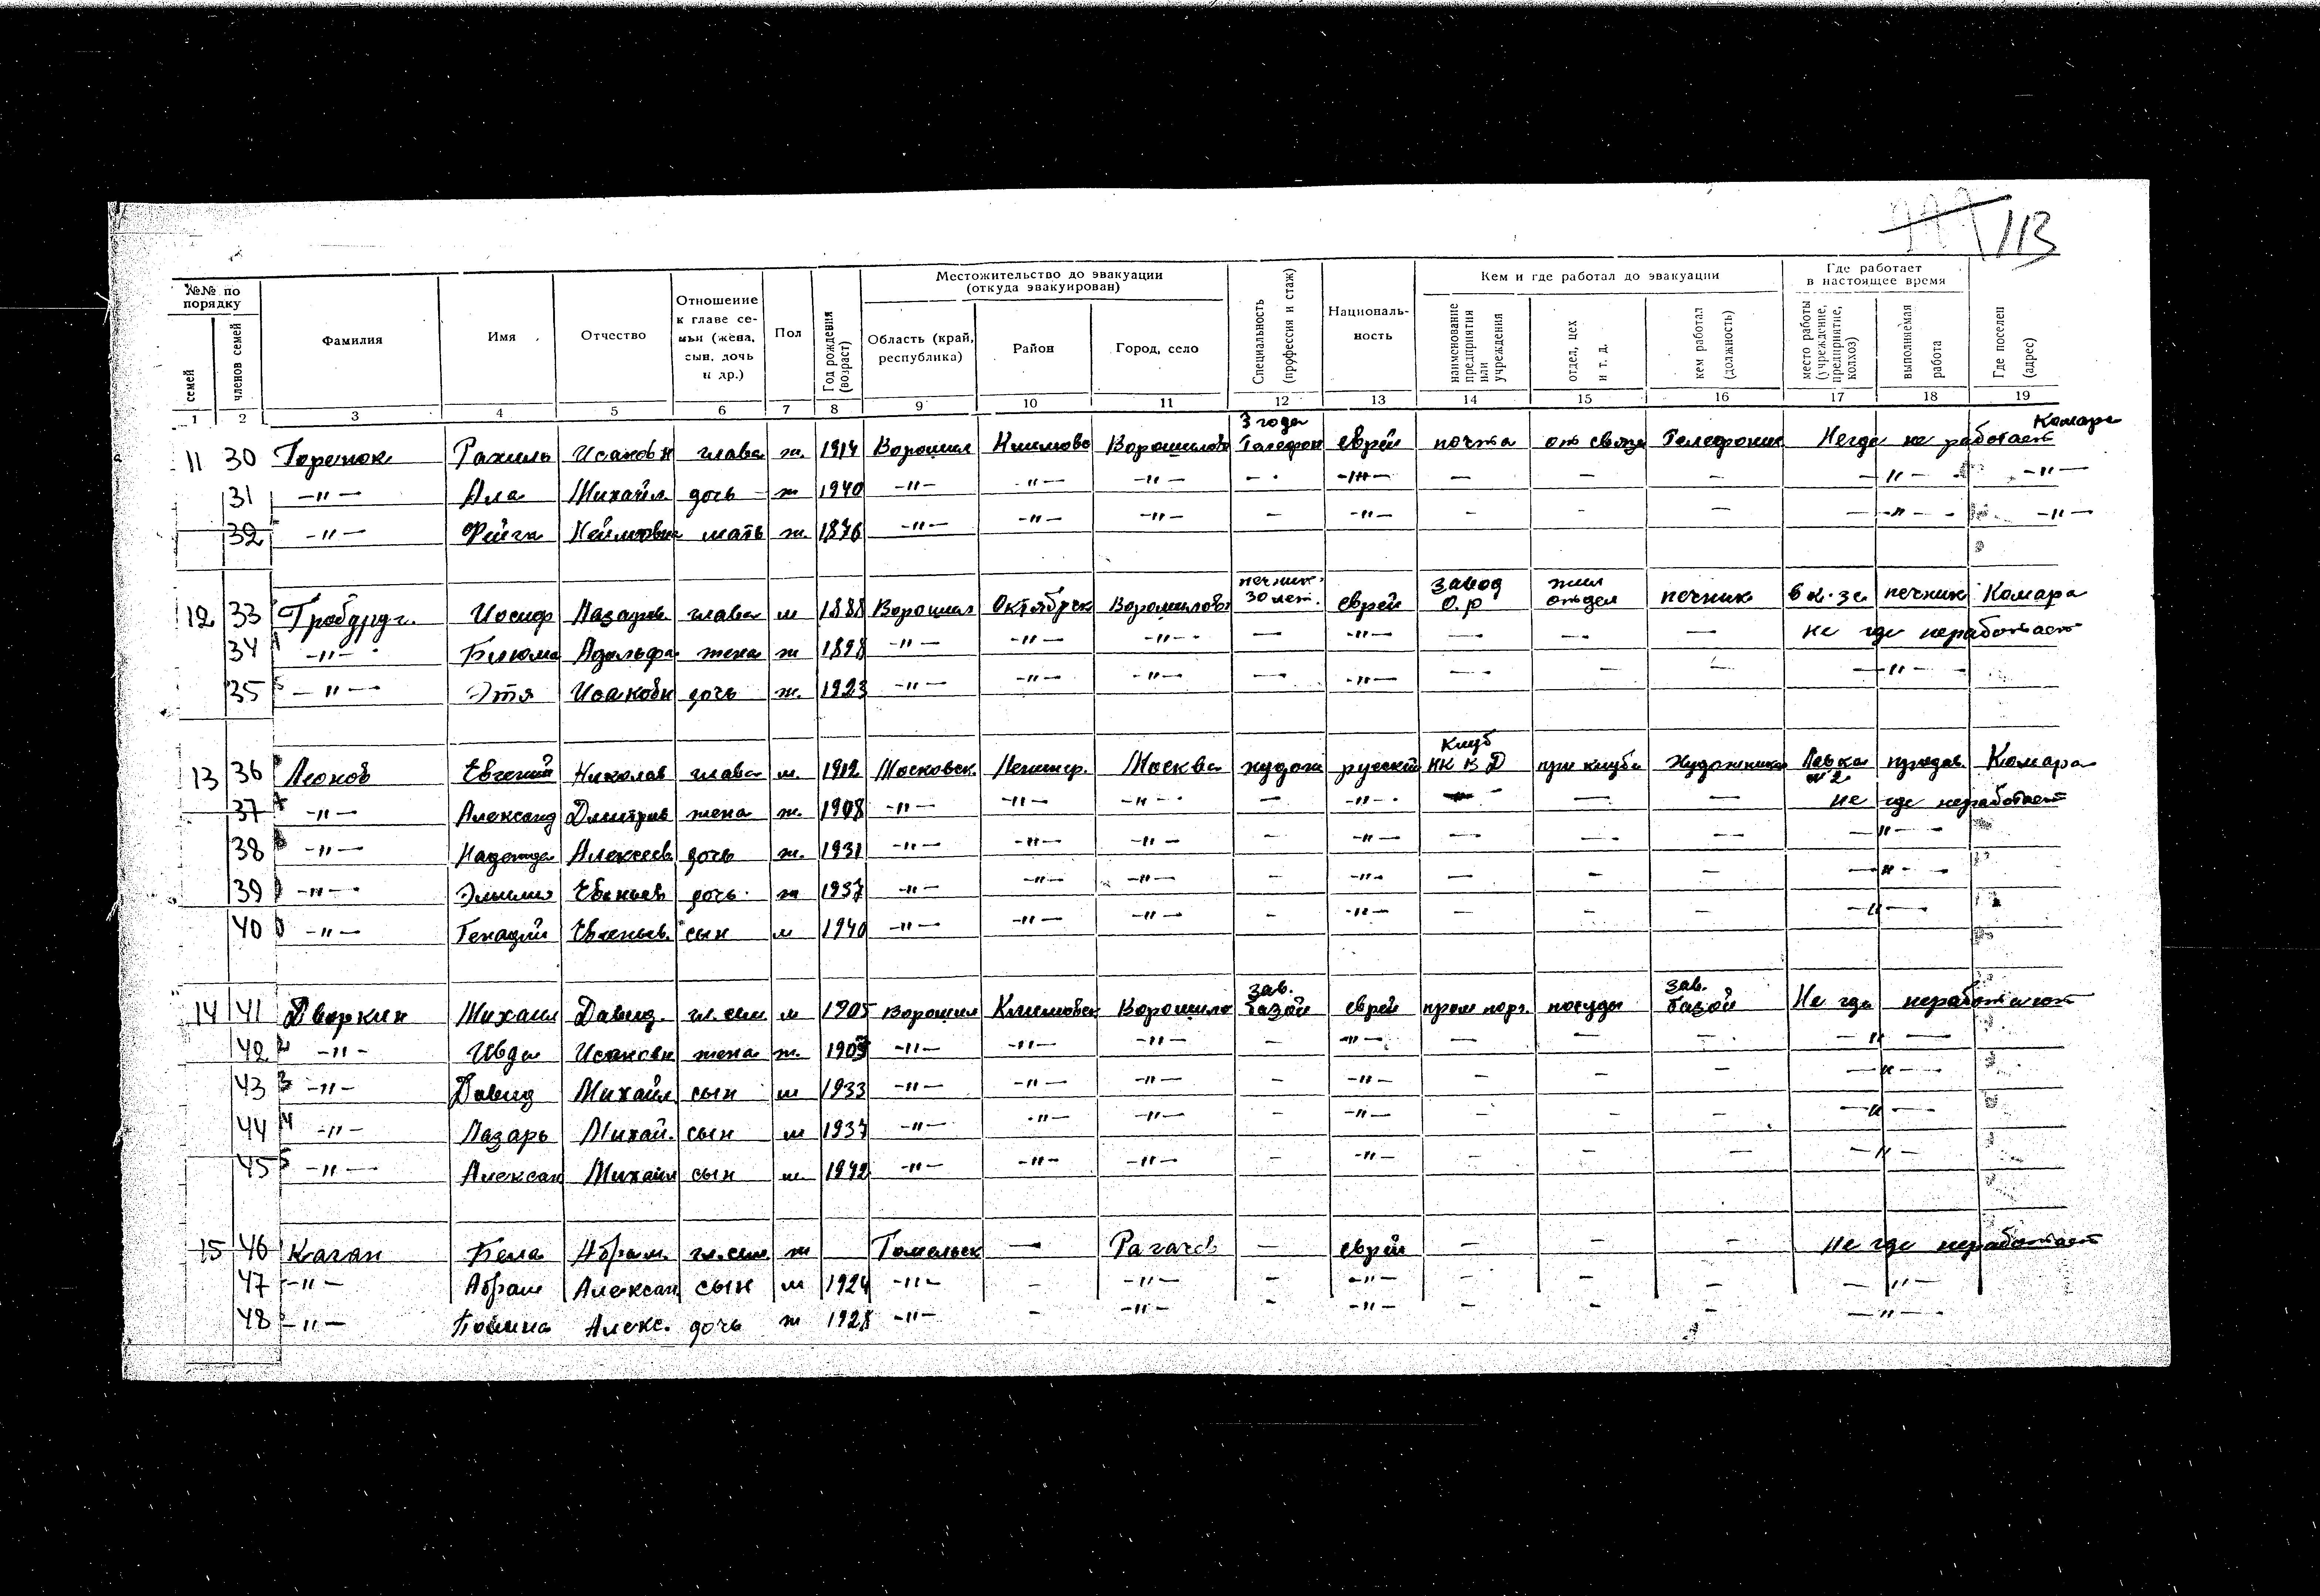 113
№№ по порядку | Фамилия | Имя | Отчество | Отношение к главе семьи (жена, сын, дочь и др.) | Пол | Год рождения (возраст) | Местожительство до эвакуации (откуда эвакуирован) | Специальность (профессия и стаж) | Националь-ность | Кем и где работал до эвакуации | Где работает в настоящее время | Где поселен (адрес)
семей | членов семей | Область (край, республика) | Район | Город, село | наименование предприятия или учреждения | отдел, цех и т. д. | кем работал (должность) | место работы (учреждение, предприятие, колхоз) | выполняемая работа
1 | 2 | 3 | 4 | 5 | 6 | 7 | 8 | 9 | 10 | 11 | 12 | 13 | 14 | 15 | 16 | 17 | 18 | 19
11 | 30 | Горенок | Рахиль | Исаковн | глава | ж. | 1914 | Ворошил | Климово | Ворошилово | 3 года Телефон | еврей | почта | от связи | Телефоник | Негде не работает | Комара
31 | -"- | Ала | Михайл | дочь | ж | 1940 | -"- | -"- | -"- | - | -"- | - | - | - | -"- | -"-
32 | -"- | Фейга | мать | ж. | 1876 | -"- | -"- | -"- | - | -"- | - | - | - | -"- | -"-
12 | 33 | Иосиф | Лазаров. | глава | м | 1888 | Ворошил | Октябрск | Ворошилово | печник 30 лет. | еврей | завод О.р | жил отдел | печник | в к-зе | печник | Комара
34 | -"- | Адольфа | жена | ж | 1898 | -"- | -"- | -"- | - | -"- | - | - | - | не где неработает
35 | -"- | Этя | Исаковн | дочь | ж. | 1923 | -"- | -"- | -"- | - | -"- | - | - | - | -"-
13 | 36 | Леонов | Евгений | Николав | глава | м. | 1912 | Московск. | Ленингр. | Москва | худож | русский | Клуб НКВД | при клубе | Художника | Лавка № 2 | продав. | Комара
37 | -"- | Александ | Дмитрив | жена | ж. | 1908 | -"- | -"- | -"- | - | -"- | - | - | - | не где неработает
38 | -"- | Надежда | Алексеев | дочь | ж. | 1931 | -"- | -"- | -"- | - | -"- | - | - | - | -"-
39 | -"- | Эмилия | Евгеньев | дочь | ж | 1937 | -"- | -"- | -"- | - | -"- | - | - | - | -"-
40 | -"- | Генадий | Евгеньев. | сын | м | 1940 | -"- | -"- | -"- | - | -"- | - | - | - | -"-
14 | 41 | Дворкин | Михаил | Давид. | гл. сем | м | 1905 | Ворошил | Климовск | Ворошило | зав. базой | еврей | пром торг. | посуды | зав. базой | Не где неработают
42 | -"- | Исаковн | жена | ж. | -"- | -"- | -"- | - | -"- | - | - | - | -"-
43 | -"- | Давид | Михайл | сын | м | 1933 | -"- | -"- | -"- | - | -"- | - | - | - | -"-
44 | -"- | Лазарь | Михай. | сын | м | 1937 | -"- | -"- | -"- | - | -"- | - | - | - | -"-
45 | -"- | Алексан | Михаил | сын | м | 1942 | -"- | -"- | -"- | - | -"- | - | - | - | -"-
15 | 46 | Каган | Бела | Абрам. | гл. сем. | ж | Гомельск | - | Рагачев | - | еврей | - | - | - | не где неработает
47 | -"- | Абрам | Алексан | сын | м | 1924 | -"- | - | -"- | - | -"- | - | - | - | -"-
48 | -"- | Алекс. | дочь | ж | 1928 | -"- | - | -"- | - | -"- | - | - | - | -"-